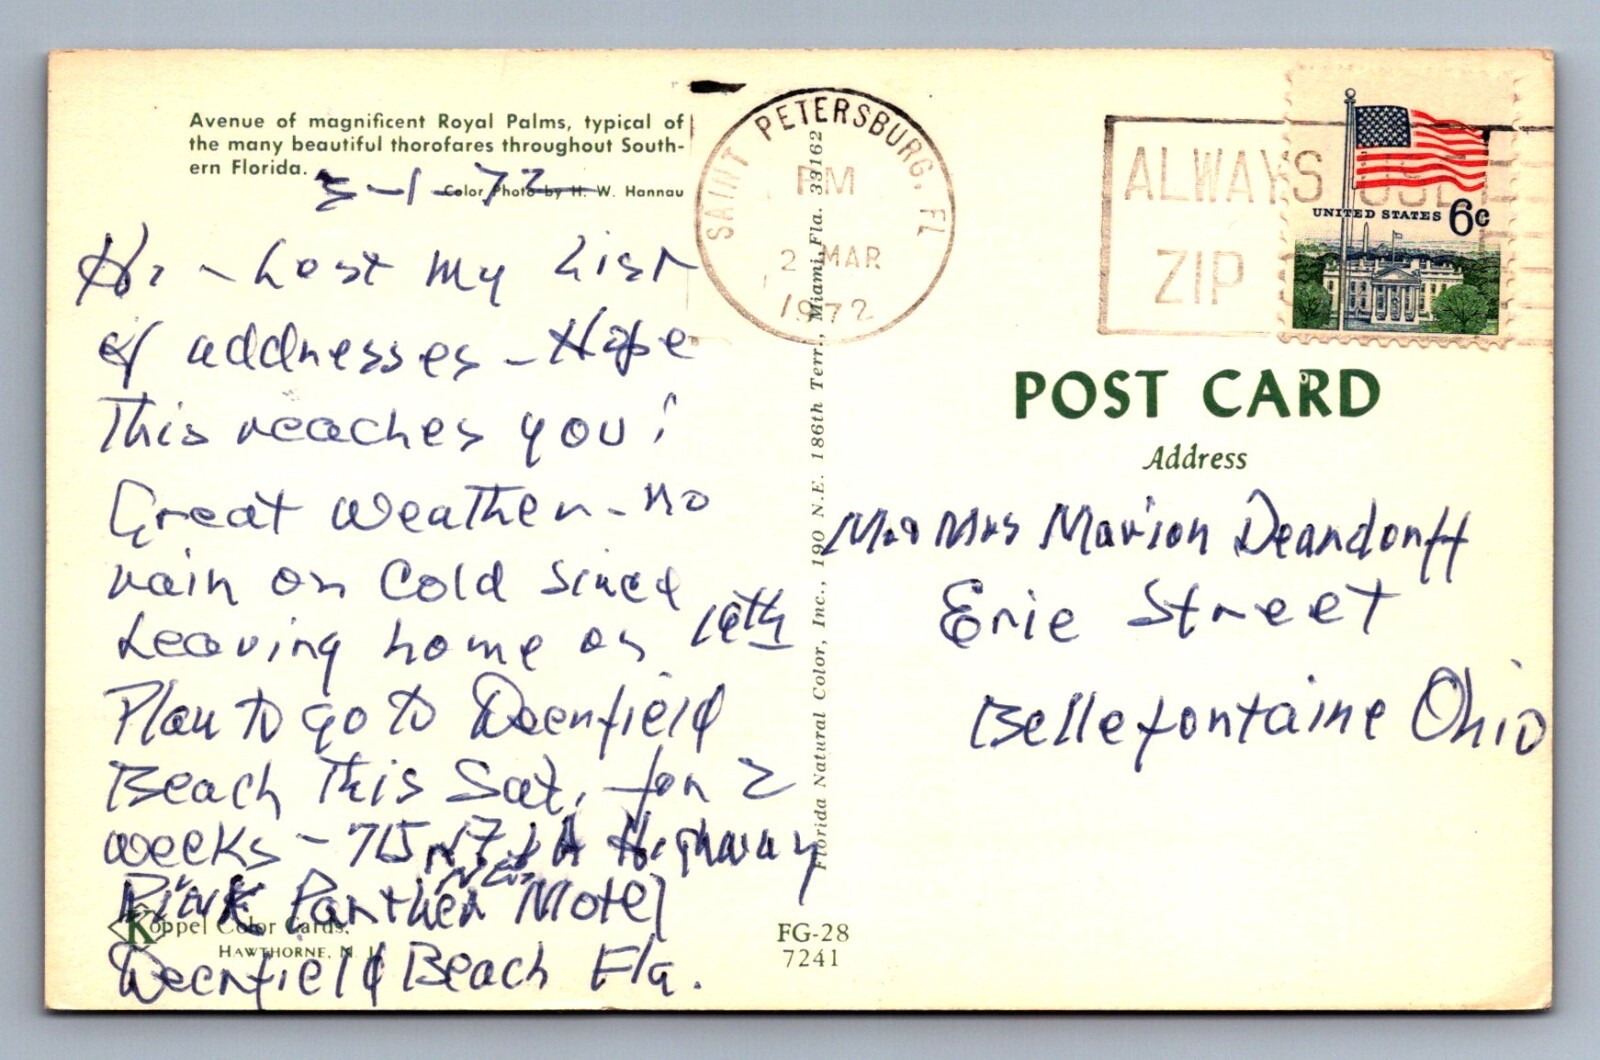 Avenue of magnificent Royal Palms, typical of
the many beautiful thorofares throughout South-
ern Florida.
Color Photo by H. W. Hannau
3-1-72
Hi - Lost my List
of addresses - Hope
This reaches you!
Great weather - no
rain or Cold since
Leaving home on 16th
Plan to go to Deerfield
Beach This Sat, for 2
weeks - 715 A Highway
Pink Panther Motel
Deerfield Beach Fla.
Koppel Color Cards,
HAWTHORNE, N. J.
Florida Natural Color, Inc., 190 N.E. 186th Terr., Miami, Fla. 33162
FG-28
7241
SAINT PETERSBURG, FL
PM
2 MAR
1972
ALWAYS USE
ZIP
UNITED STATES 6c
POST CARD
Address
Mr & Mrs Marion Deardorff
Erie Street
Bellefontaine Ohio